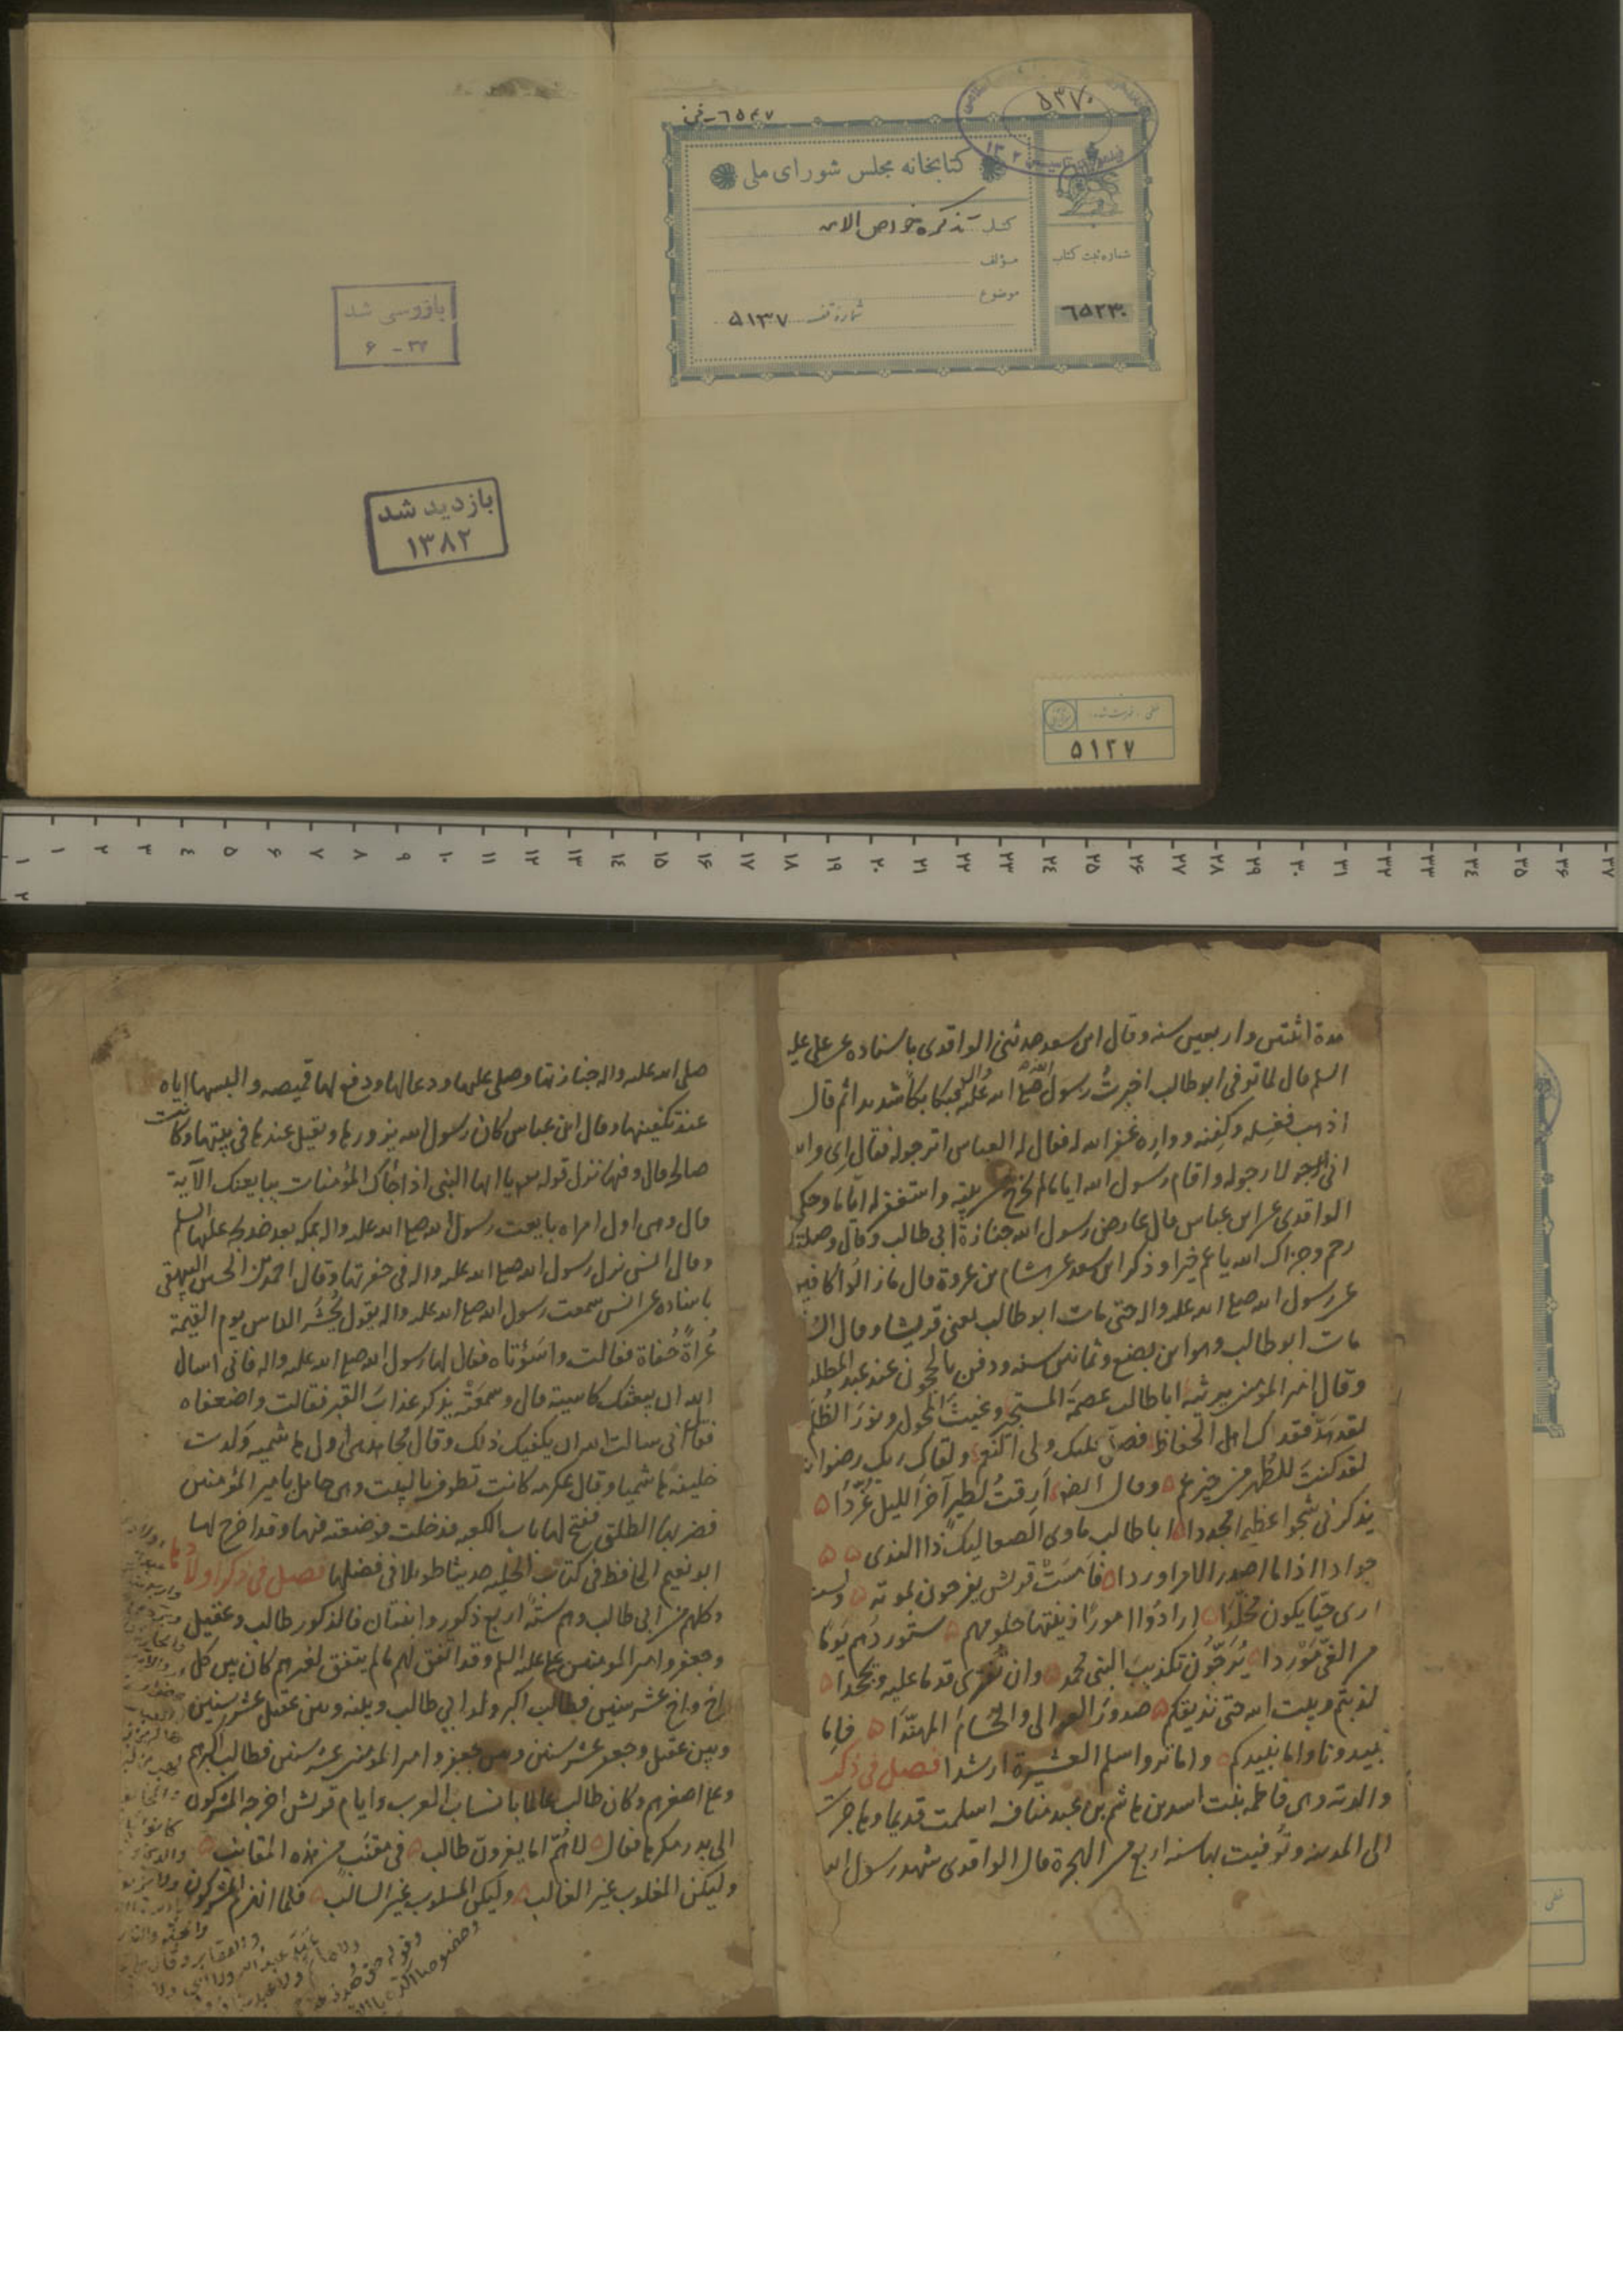 ٦٥٤٧-فی
٥٣٧٠
کتابخانه مجلس شورای ملی
کتاب تذکره خواص الامه
مؤلف
موضوع
شماره ثبت کتاب
شماره قفسه ٥١٣٧
٦٥٢٣٠
بازرسی شد
٣٦ - ۶
بازدید شد
١٣٨٢
٥١٣٧
مدة اثنتين واربعين سنه وقال ابن سعد حدثنى الواقدى باسناده عن على عليه
السلم قال لما توفى ابو طالب اخبرت رسول الله صلى الله عليه واله فبكا بكاً شديدا ثم قال
اذهب فغسله وكفنه وواره غفر الله له فقال له العباس اترجو له فقال اى والله
انى لارجو له واقام رسول الله اياما لا يخرج من بيته واستغفر له اياما وحكى
الواقدى عن ابن عباس قال عارض رسول الله جنازة ابى طالب وقال وصلتك
رحم وجزاك الله يا عم خيرا وذكر ابن سعد عن هشام بن عروة قال ما زالوا كافين
عن رسول الله صلى الله عليه واله حتى مات ابو طالب يعنى قريشا وقال
مات ابو طالب وهو ابن بضع وثمانين سنه ودفن بالحجون عند عبد المطلب
وقال امير المؤمنين يرثيه ابا طالب عصمة المستجير وغيث المحول ونور الظلم
لقد هدّ فقدك اهل الحفاظ فصلى عليك ولى النعم ولقاك ربك رضوانه
لقد كنت للطهر من خير عم وقال ايضا ارقت لطير آخر الليل غردا
يذكرنى شجوا عظيما مجددا ابا طالب ماوى الصعاليك ذا الندى
جوادا اذا ما اصدر الامر اوردا فامست قريش يفرحون بموته ولست
ارى حيّا يكون مخلدا ارادوا امورا زينتها حلومهم ستوردهم يوما
من الغى موردا يرجون تكذيب النبى محمد وان يفترى قدما عليه ويجحدا
كذبتم وبيت الله حتى نذيقكم صدور العوالى والحسام المهندا فاما
تبيدونا واما نبيدكم واما تروا سلم العشيرة ارشدا فصل فى ذكر
والدته وهى فاطمة بنت اسد بن هاشم بن عبد مناف اسلمت قديما وهاجرت
الى المدينه وتُوفيت بها سنه اربع من الهجرة قال الواقدى شهد رسول الله
صلى الله عليه واله جنازتها وصلى عليها ودعا لها ودفع لها قميصه والبسها اياه
عند تكفينها وقال ابن عباس كان رسول الله يزورها ويقيل عندها فى بيتها وكانت
صالحه قال وفيها نزل قوله تعالى يا ايها النبى اذا جاءك المؤمنات يبايعنك الآية
قال وهى اول امراه بايعت رسول الله صلى الله عليه واله بمكه بعد خديجه عليها السلم
وقال انس نزل رسول الله صلى الله عليه واله فى حفرتها وقال احمد بن الحسين البيهقى
باسناده عن انس سمعت رسول الله صلى الله عليه واله يقول يُحشَر الناس يوم القيمة
عُراةً حُفاة فقالت واسوأتاه فقال لها رسول الله صلى الله عليه واله فانى اسال
الله ان يبعثك كاسية قال وسمعته يذكر عذاب القبر فقالت واضعفاه
فقال انى سالت الله ان يكفيك ذلك وقال مجاهد هى اول هاشميه ولدت
خليفة هاشميا وقال عكرمه كانت تطوف بالبيت وهى حامل بامير المؤمنين
فضربها الطلق ففتح لها باب الكعبه فدخلت فوضعته فيها وقد اخرج لها
ابو نعيم الحافظ فى كتاب الحليه حديثا طويلا فى فضلها فصل فى ذكر اولادها
وكلهم من ابى طالب وهم ستة اربع ذكور وابنتان فالذكور طالب وعقيل
وجعفر وامير المومنين على عليه السلم وقد اتفق لهم ما لم يتفق لغيرهم كان بين كل
اخ واخ عشر سنين فطالب اكبر ولد ابى طالب وبينه وبين عقيل عشر سنين
وبين عقيل وجعفر عشر سنين وبين جعفر وامير المومنين عشر سنين فطالب اكبرهم
وعلى اصغرهم وكان طالب عالما بانساب العرب وايام قريش اخرجه المشركون
الى بدر مكرها فقال لاهُمَّ اما يغزون طالب فى مقنب من هذه المقانب
وليكن المغلوب غير الغالب وليكن المسلوب غير السالب فلما انهزم المشركون